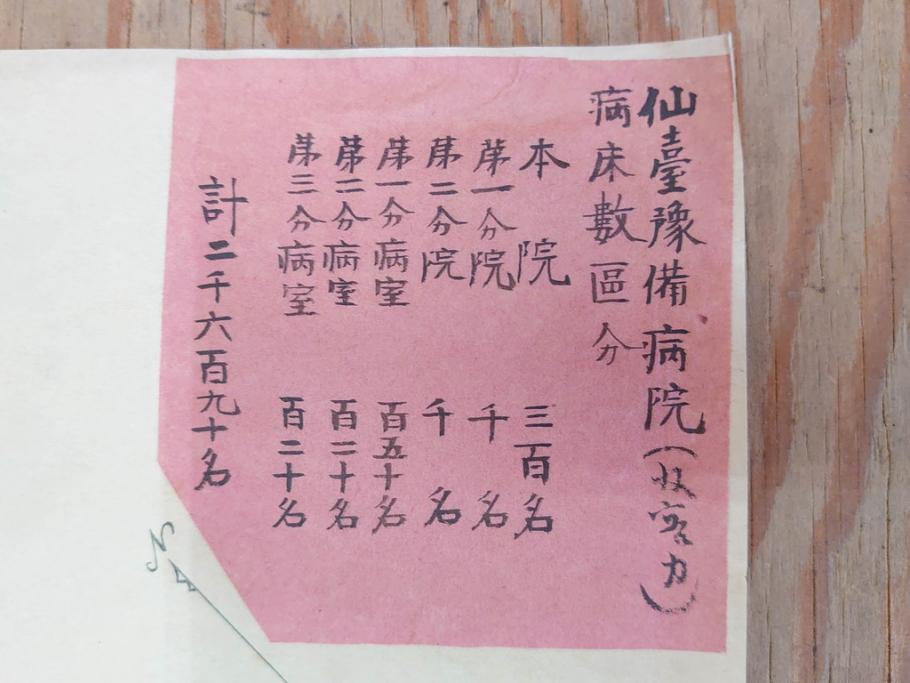 仙臺豫備病院(收容力)
病床數區分
本院 三百名
第一分院 千名
第二分院 千名
第一分病室 百五十名
第二分病室 百二十名
第三分病室 百二十名
計二千六百九十名
N